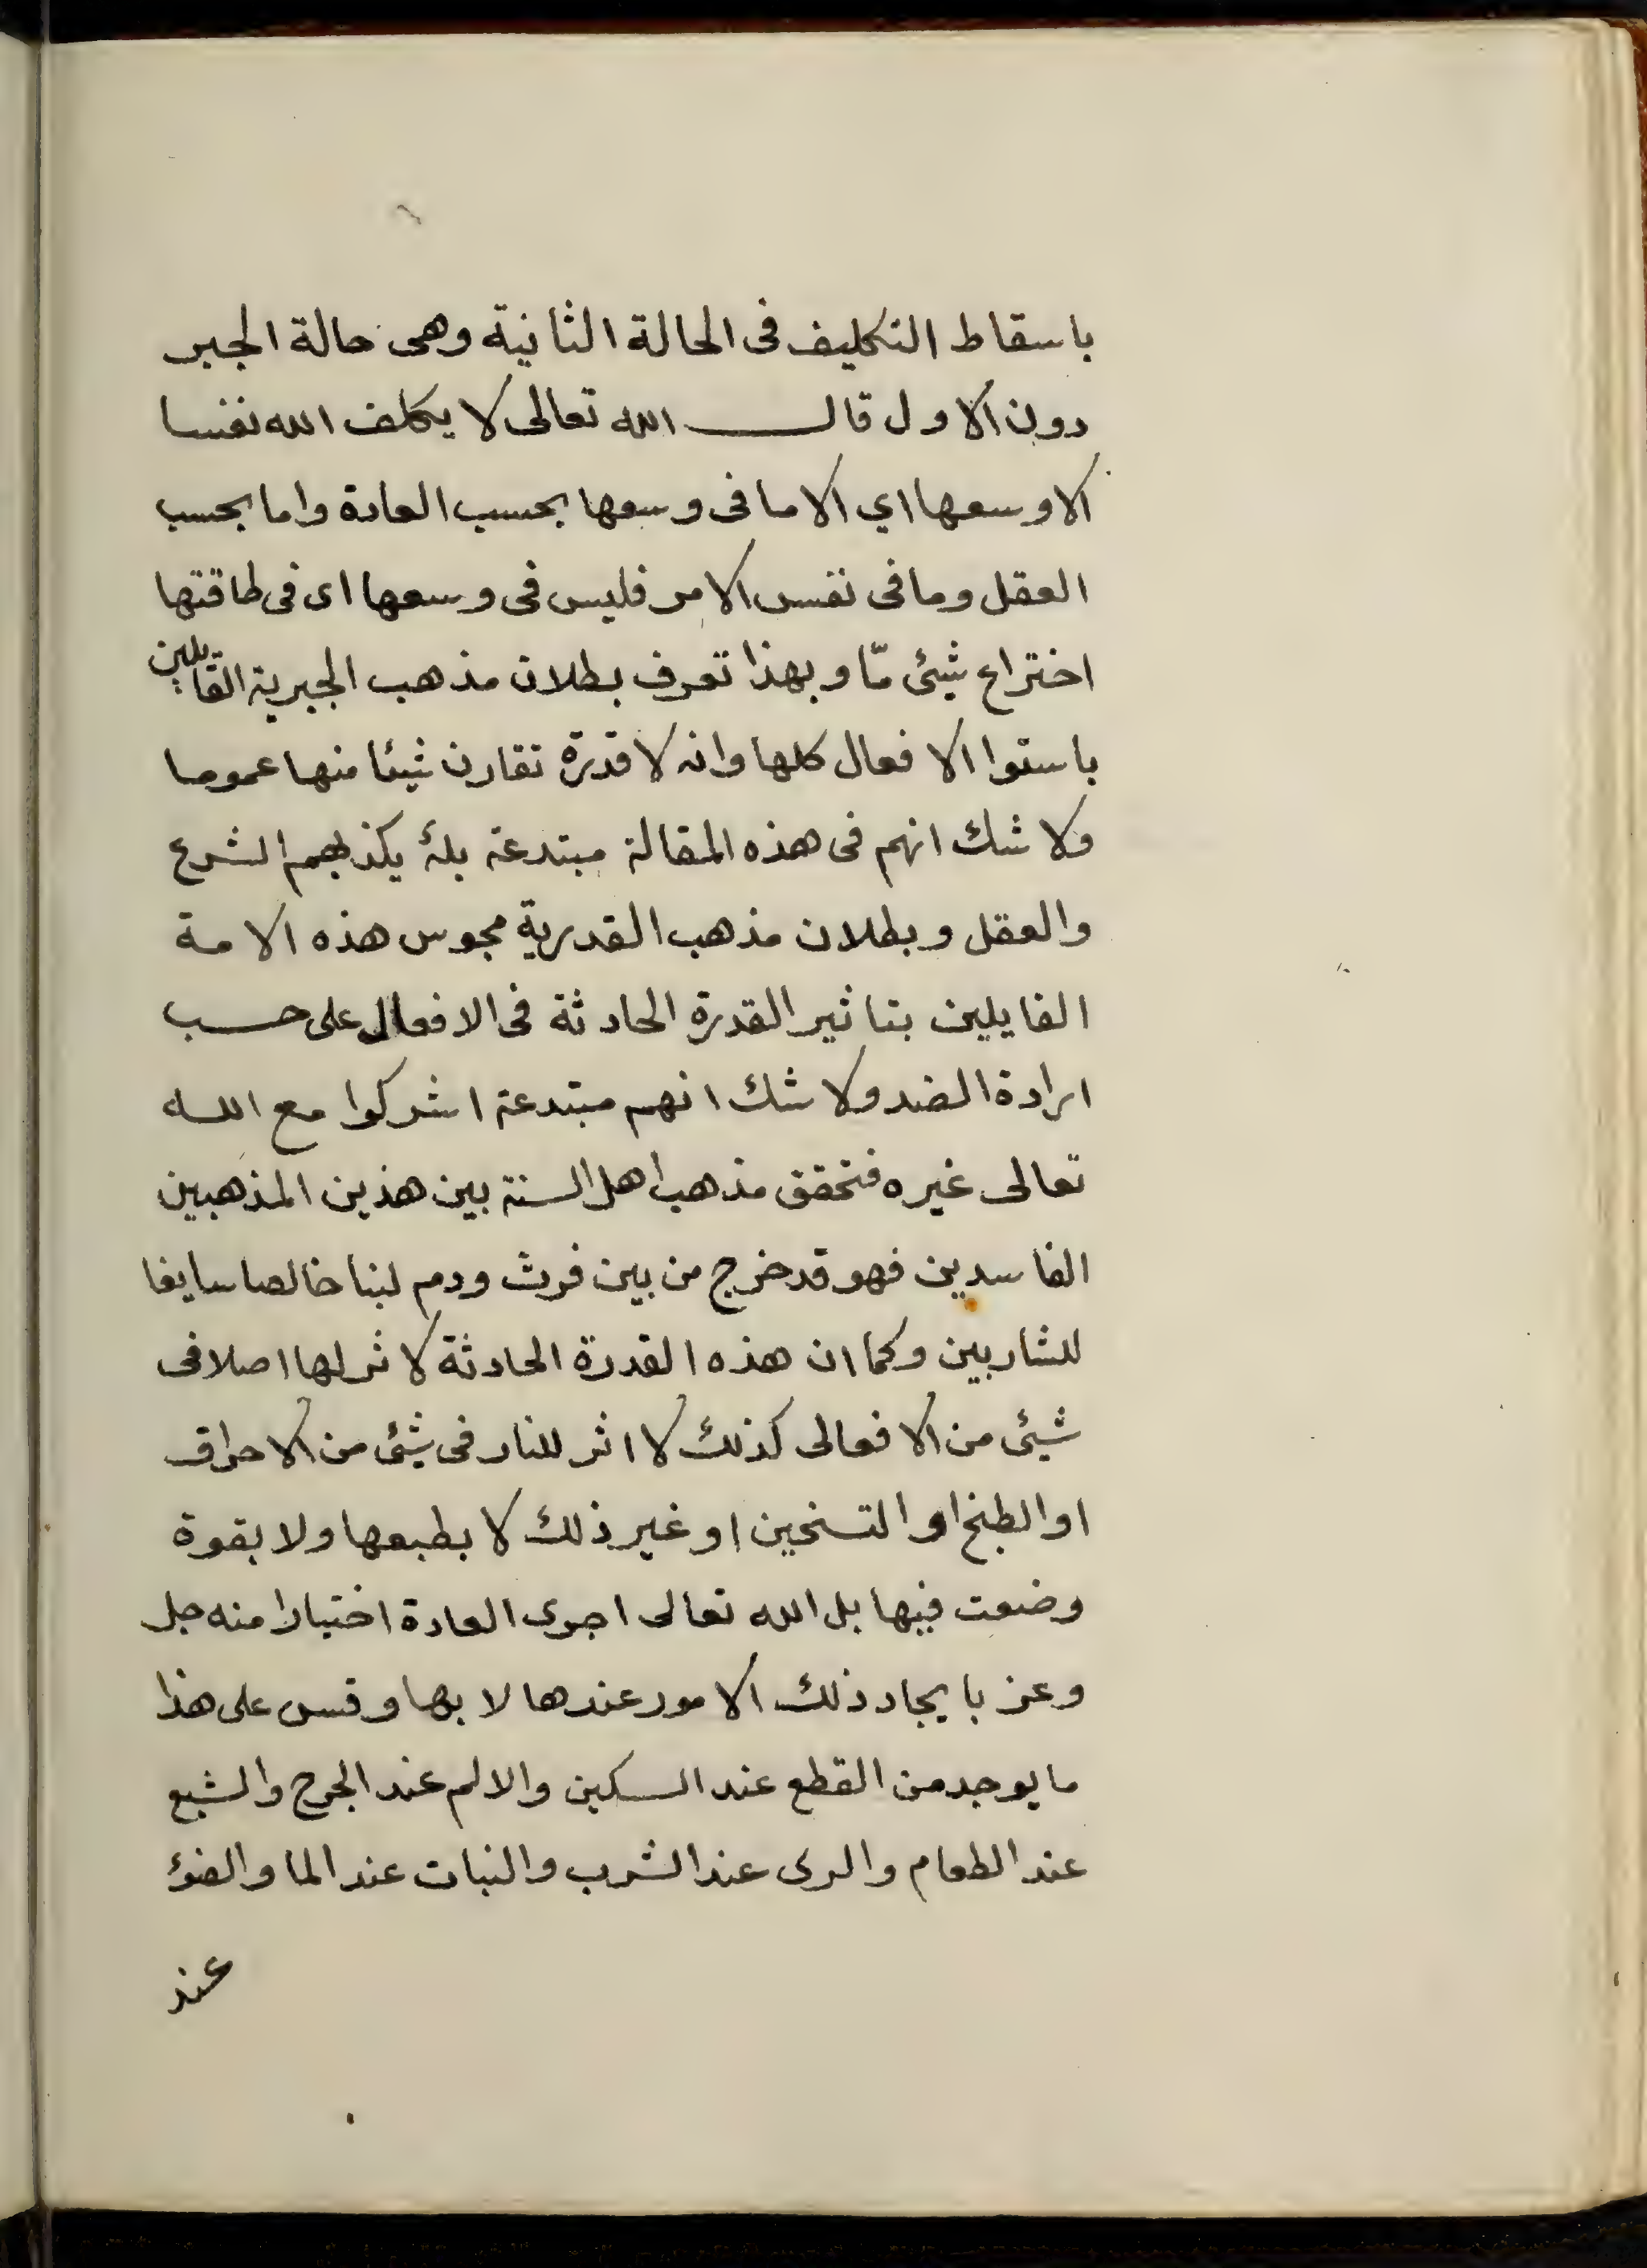 باسقاط التكليف فى الحالة الثانية وهى حالة الجبر
دون الاول قال الله تعالى لا يكلف الله نفسا
الاوسعها اي الا ما فى وسعها بحسب العادة واما بحسب
العقل وما فى نفس الامر فليس فى وسعها اى فى طاقتها
اختراع شيئى مّا وبهذا تعرف بطلان مذهب الجبرية القايلين
باستوا الافعال كلها وانه لا قدرة تقارن شيئا منها عموما
ولا شك انهم فى هذه المقالة مبتدعة بلهٔ يكذبهم الشرع
والعقل وبطلان مذهب القدرية مجوس هذه الامة
القايلين بتاثير القدرة الحادثة فى الافعال على حسب
ارادة العبد ولا شك انهم مبتدعة اشركوا مع الله
تعالى غيره فتحقق مذهب اهل السنة بين هذين المذهبين
الفاسدين فهو قد خرج من بين فرث ودم لبنا خالصا سايغا
للشاربين وكما ان هذه القدرة الحادثة لا ثر لها اصلا فى
شيئى من الافعالى كذلك لا اثر للنار فى شيئى من الاحراق
او الطبخ او التسخين او غير ذلك لا بطبعها ولا بقوة
وضعت فيها بل الله تعالى اجرى العادة اختيارا منه جل
وعز بايجاد ذلك الامور عندها لا بها وقس على هذا
ما يوجد من القطع عند السكين والالم عند الجرح والشبع
عند الطعام والرى عند الشرب والنبات عند الما والضوء
عند